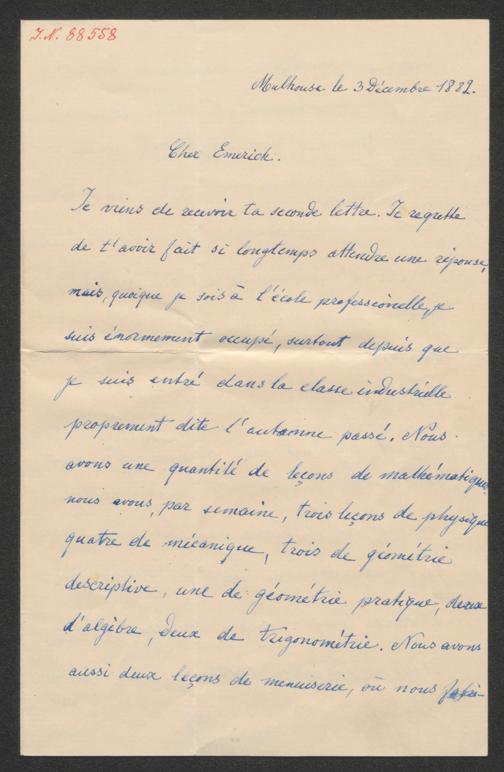 J.N. 88558
Mulhouse le 3 Décembre 1882.
Cher Emerich.
Je viens de recevoir ta seconde lettre. Je regrette
de t'avoir fait si longtemps attendre une réponse,
mais, quoique je sois à l'école professionelle, je
suis énormement occupé, surtout depuis que
je suis entré dans la classe industrielle
proprement dite l'automne passé. Nous
avons une quantité de leçons de mathématique,
nous avons, par semaine, trois leçons de physique
quatre de mécanique, trois de géométrie
descriptive, une de géométrie pratique, deux
d'algèbre, deux de trigonométrie. Nous avons
aussi deux leçons de menuiserie, où nous fabri-